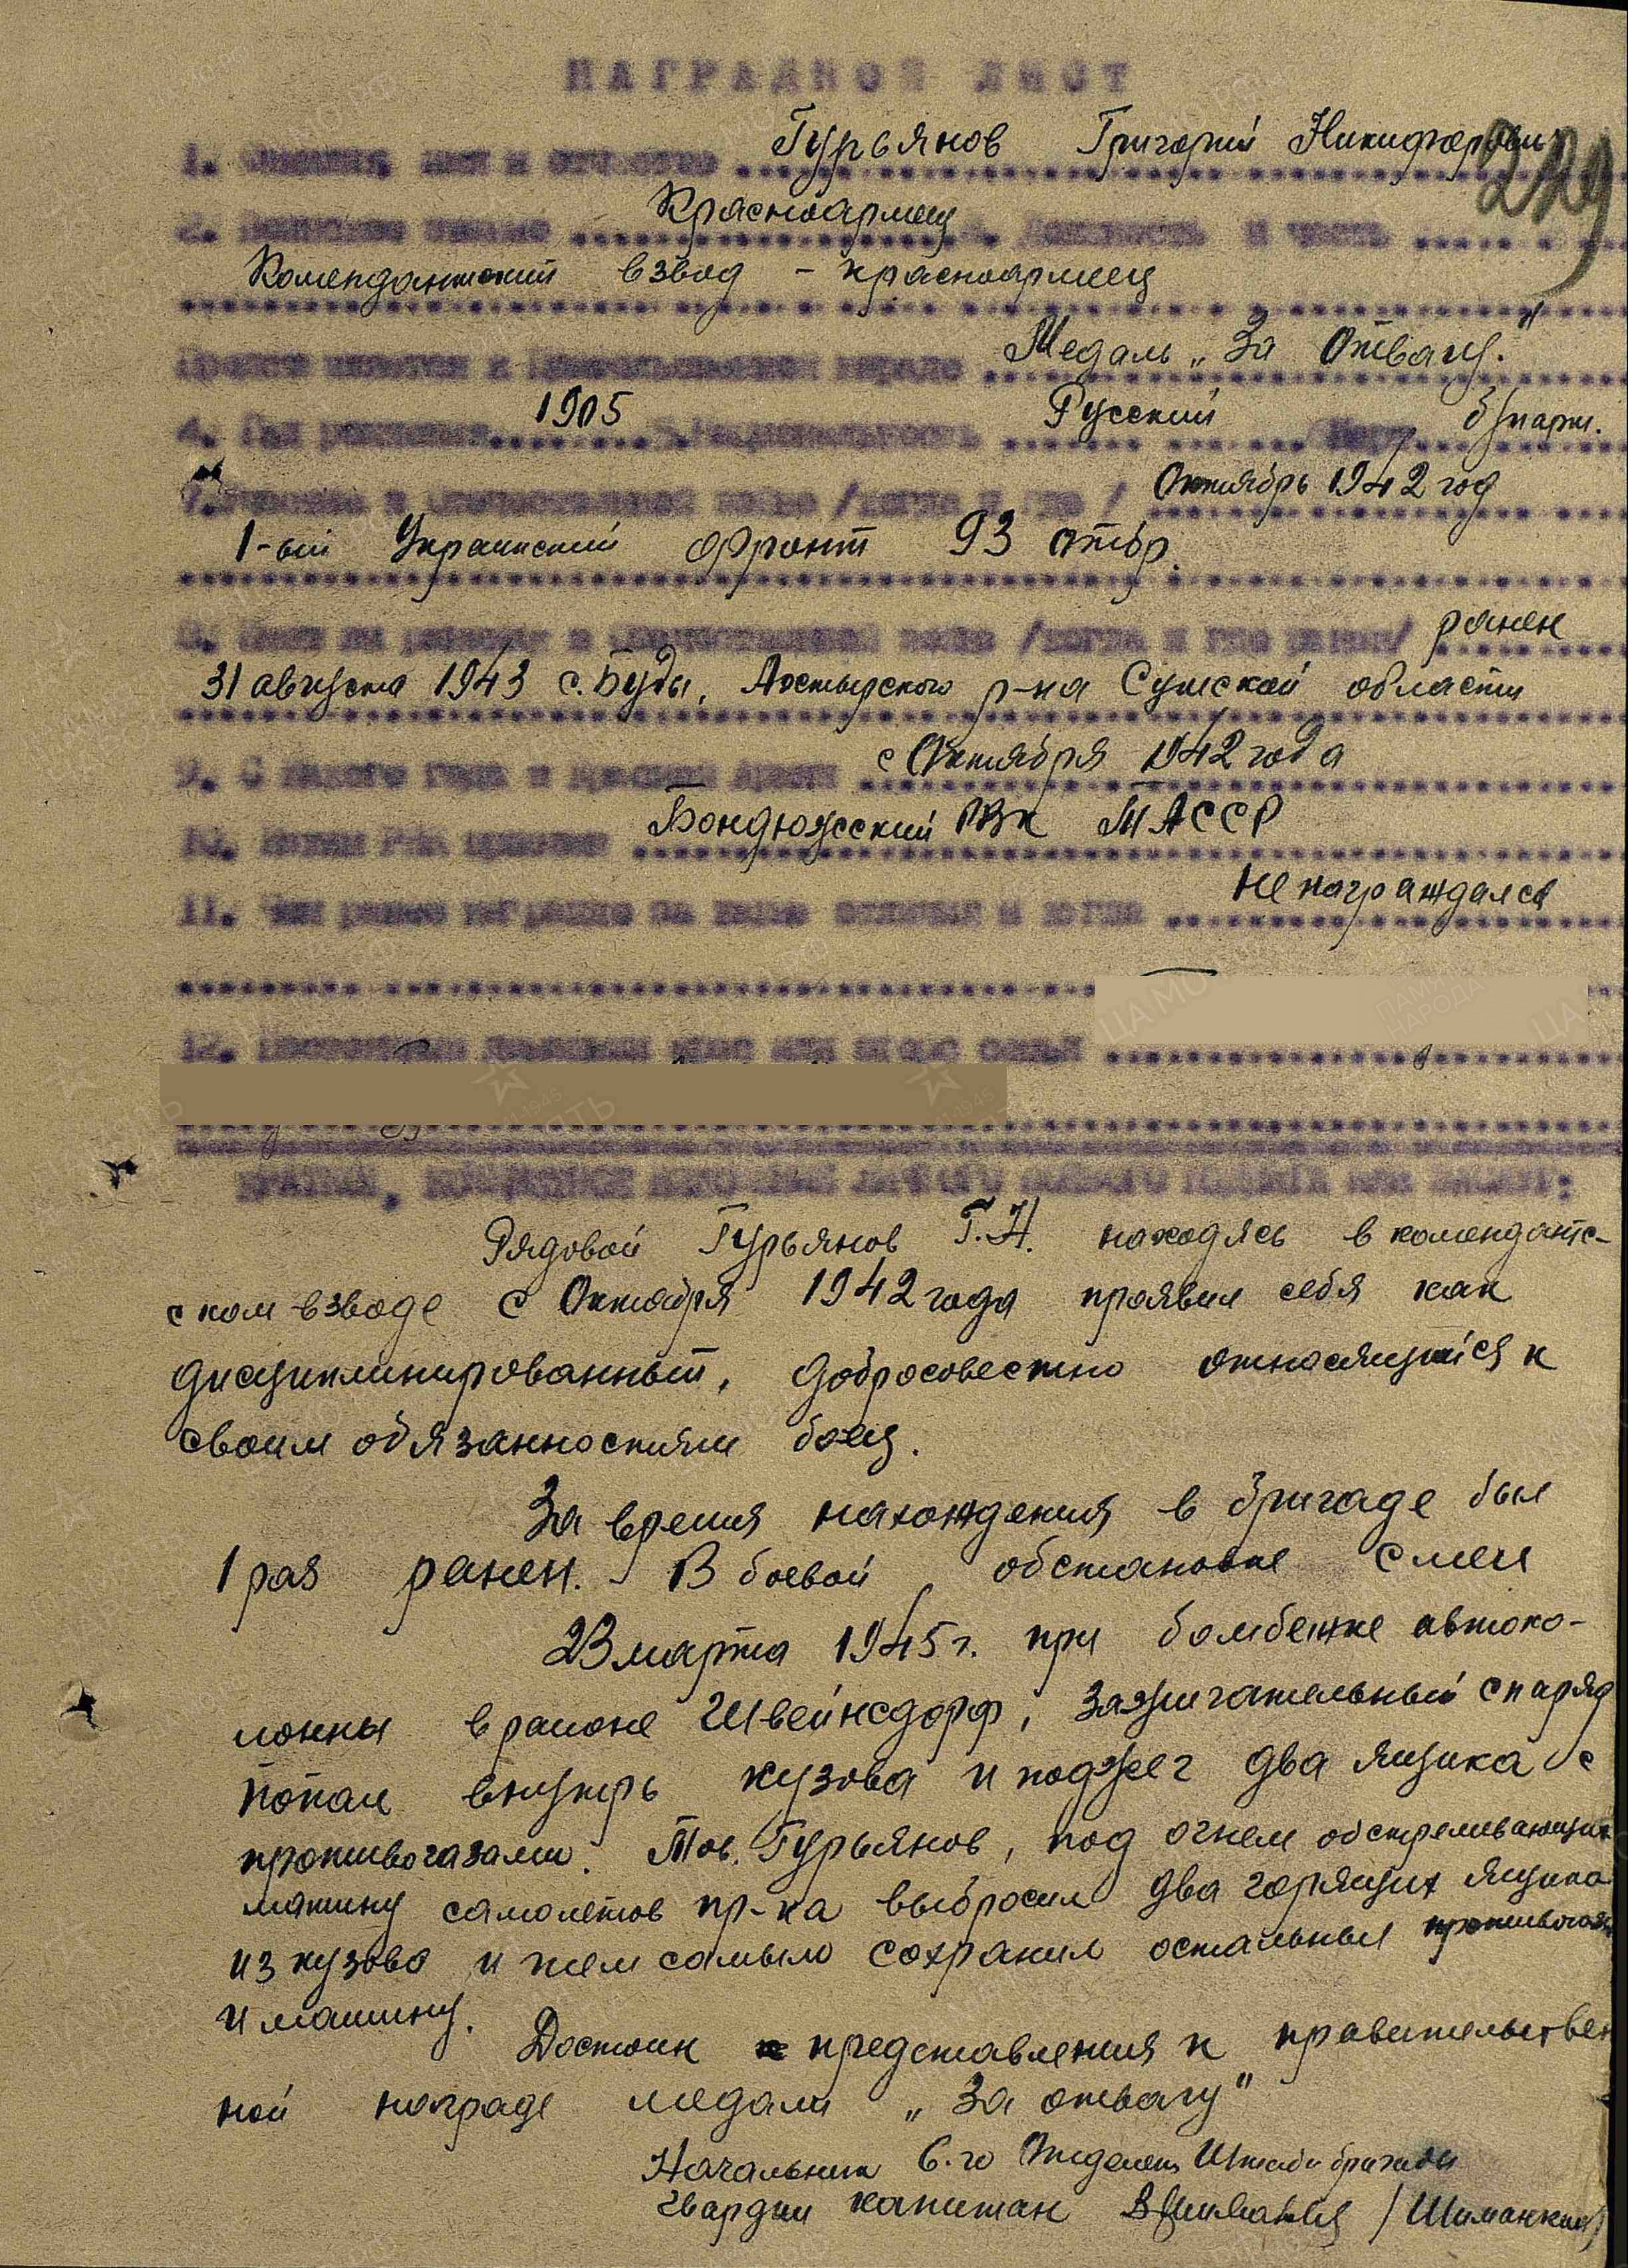 НАГРАДНОЙ ЛИСТ
229
1. Фамилия, имя и отчество Гурьянов Григорий Никифорович
2. Воинское звание Красноармеец 3. Должность и часть
Комендантский взвод - красноармеец
Представляется к Медаль „За Отвагу."
4. Год рождения 1905 5. Национальность Русский 6. Парт. б/парт.
7. Участие в отечественной войне /когда и где/ Октябрь 1942 год
1-ый Украинский фронт 93 отбр.
8. Имел ли ранение в отечественной войне /когда и где ранен/ ранен
31 августа 1943 с. Буды, Ахтырского р-на Сумской области
9. С какого года в Красной Армии с Октября 1942 года
10. Каким РВК призван Бондюжский РВК ТАССР
11. Чем ранее награжден за какие отличия и когда Не награждался
12. Постоянный домашний адрес или адрес семьи
КРАТКОЕ, КОНКРЕТНОЕ ИЗЛОЖЕНИЕ ЛИЧНОГО БОЕВОГО ПОДВИГА ИЛИ ЗАСЛУГ:
Рядовой Гурьянов Г.Н. находясь в комендантс-
ском взводе с Октября 1942 года проявил себя как
дисциплинированный, добросовестно относящийся к
своим обязанностями боец.
За время нахождения в бригаде был
1 раз ранен. В боевой обстановке смел
23 марта 1945 г. при бомбежке автоко-
лонны в районе Швейнсдорф, зажигательный снаряд
попал внутрь кузова и поджег два ящика с
противогазами. Тов. Гурьянов, под огнем обстреливающих
машину самолетов пр-ка выбросил два горящих ящика
из кузова и тем самым сохранил остальные противогазы
и машину.
Достоин представления к правительствен
ной награде медали „За отвагу"
Начальник 6-го Отделен Штаба бригады
гвардии капитан /Шиманкин/